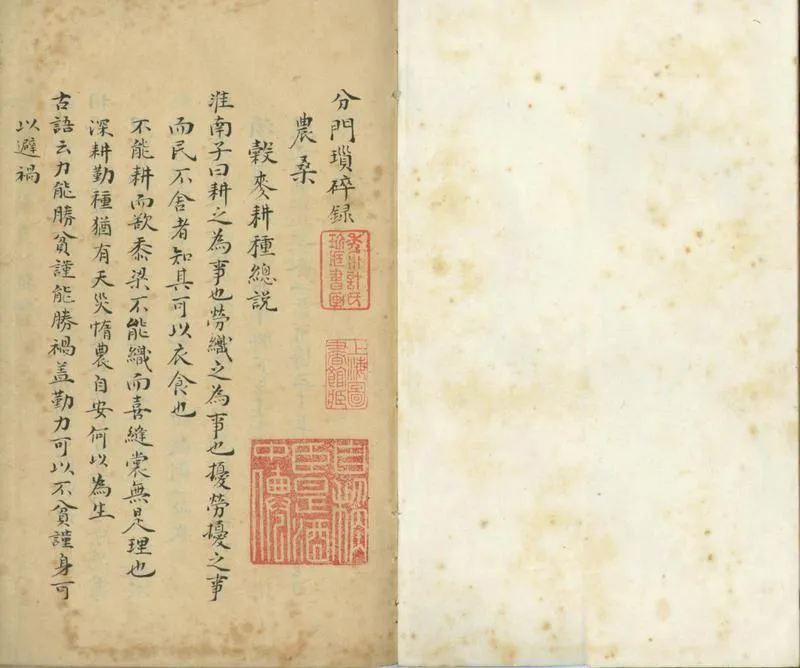 分門瑣碎録
農桑
穀麥耕種總説
淮南子曰耕之為事也勞織之為事也擾勞擾之事
而民不舍者知其可以衣食也
不能耕而欲黍梁不能織而喜縫裳無是理也
深耕勤種猶有天災惰農自安何以為生
古語云力能勝貧謹能勝禍盖勤力可以不貧謹身可
以避禍
秀水計氏
上海圖
書館藏